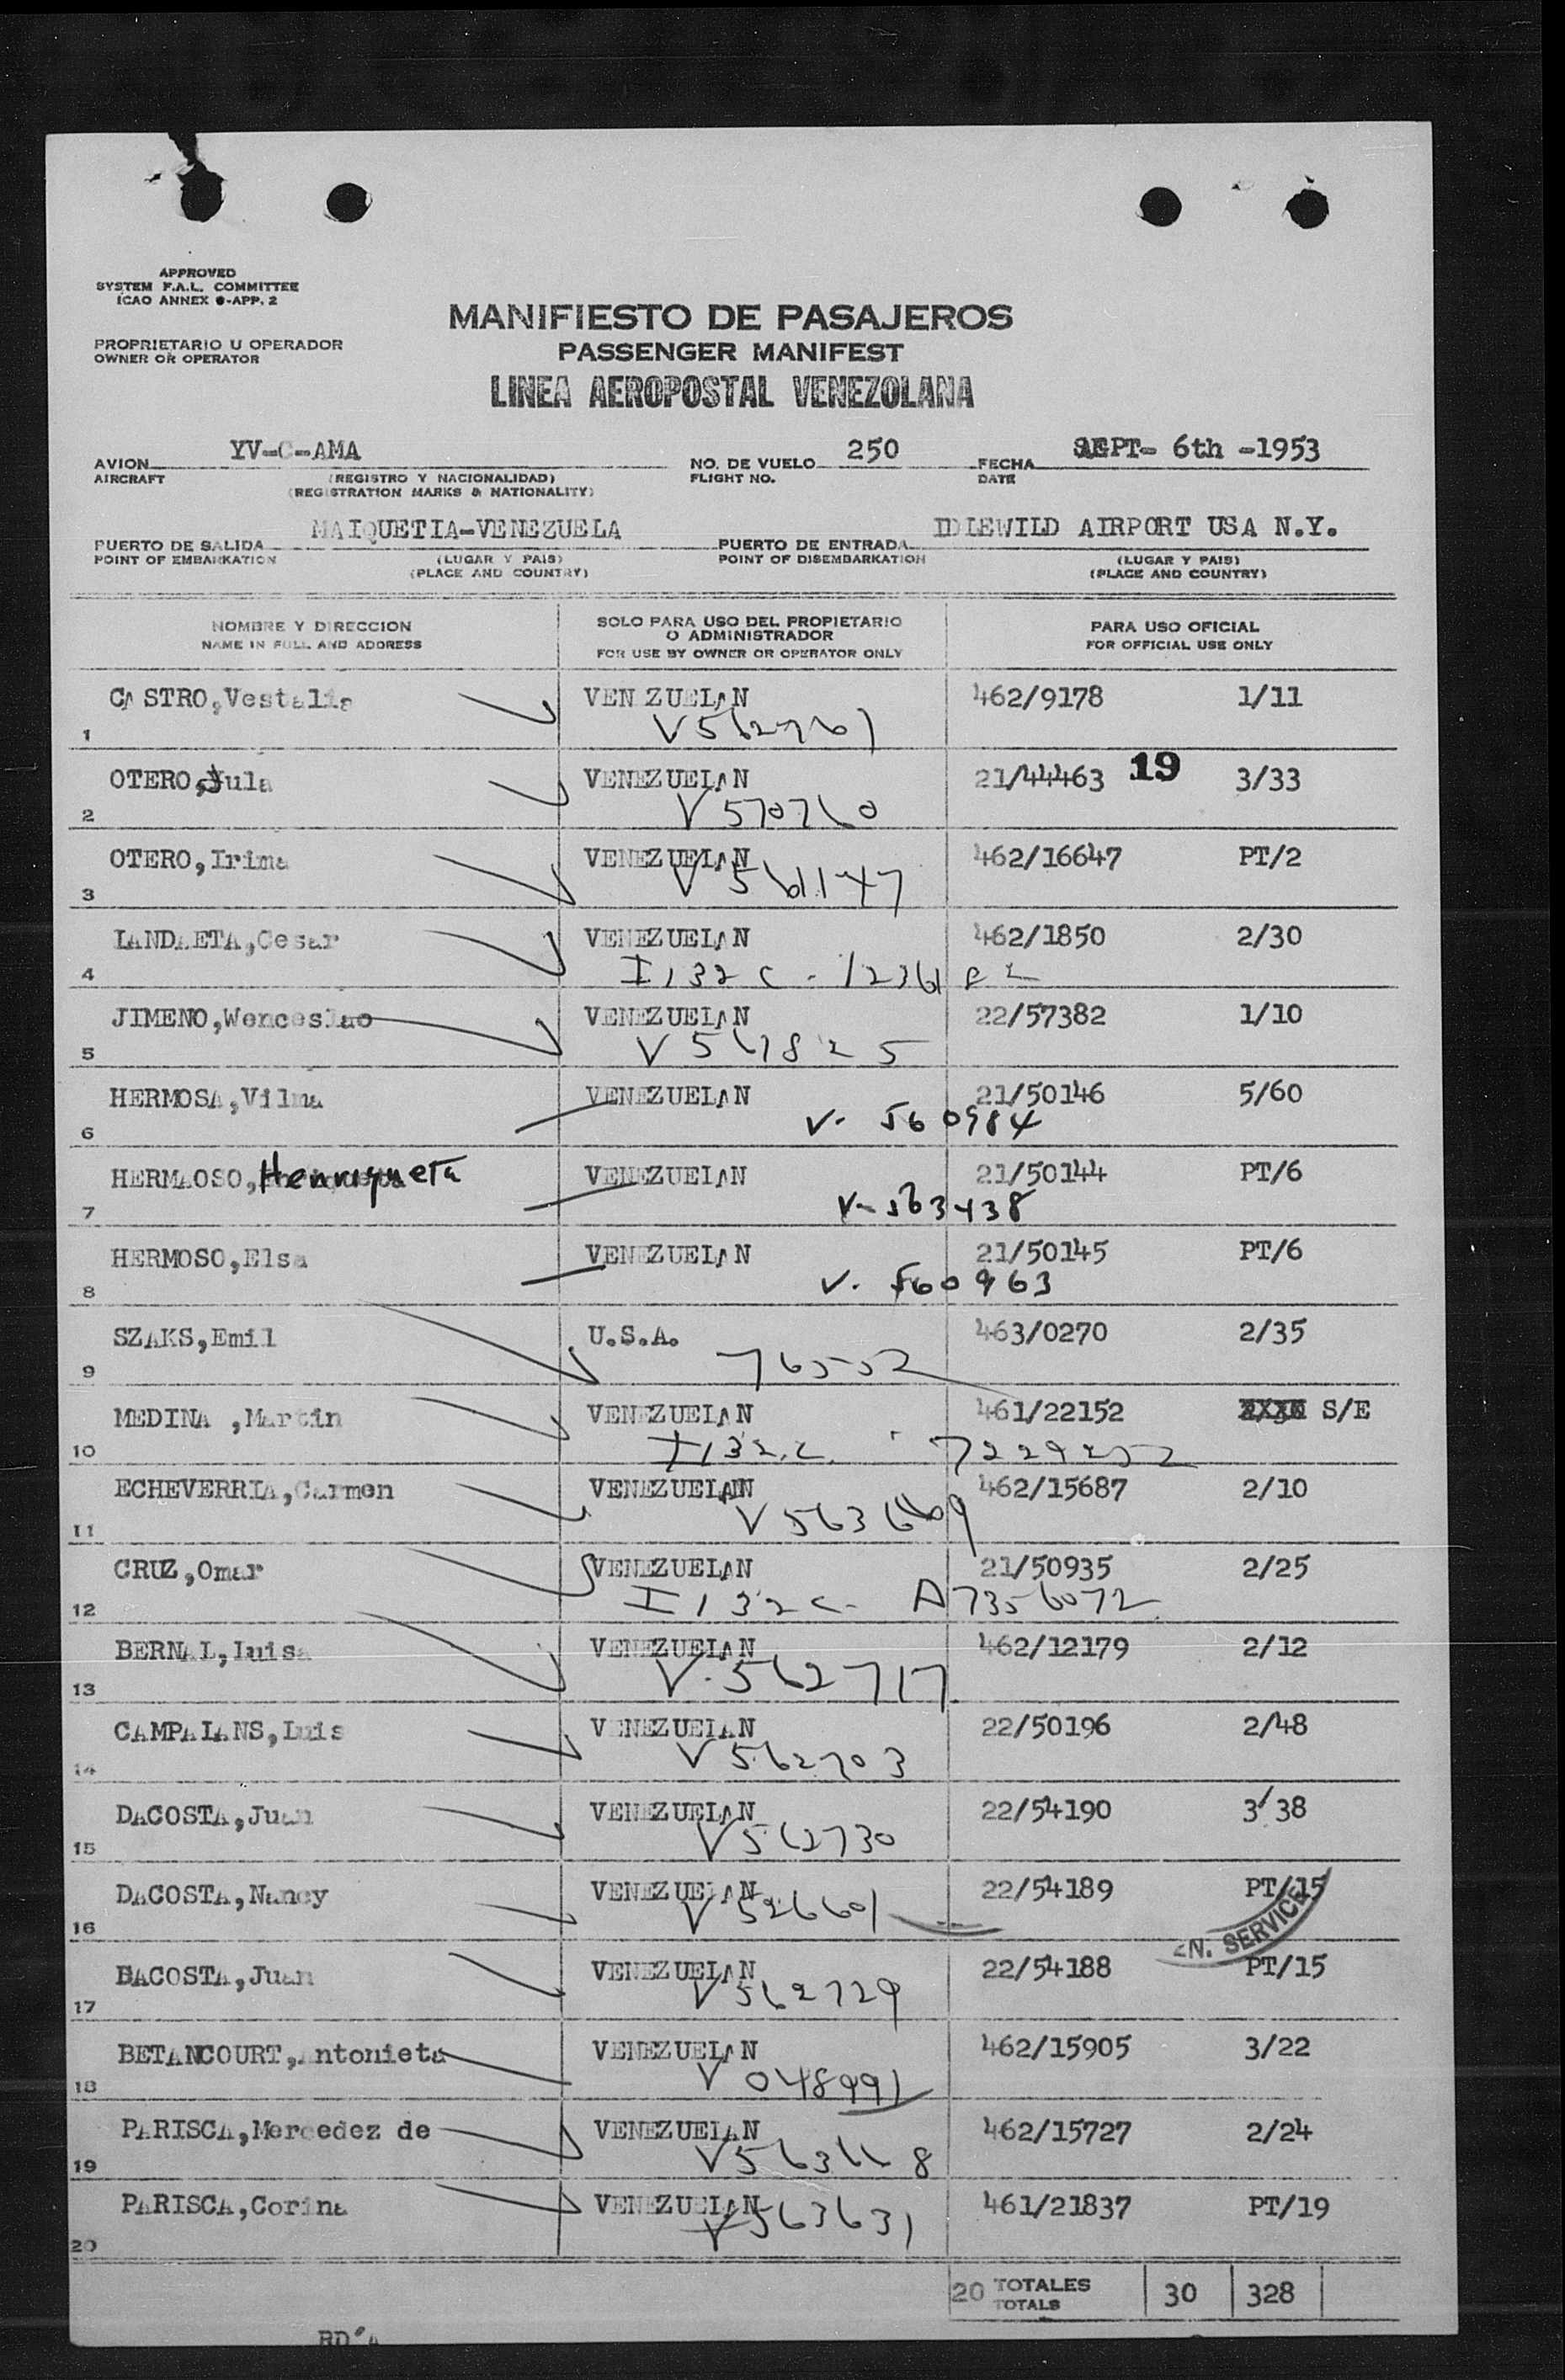 APPROVED
SYSTEM F.A.L. COMMITTEE
ICAO ANNEX 9-APP. 2
MANIFIESTO DE PASAJEROS
PROPRIETARIO U OPERADOR
OWNER OR OPERATOR
PASSENGER MANIFEST
LINEA AEROPOSTAL VENEZOLANA
AVION YV-C-AMA NO. DE VUELO 250 FECHA SEPT- 6th -1953
AIRCRAFT (REGISTRO Y NACIONALIDAD) FLIGHT NO. DATE
(REGISTRATION MARKS & NATIONALITY)
PUERTO DE SALIDA MAIQUETIA-VENEZUELA PUERTO DE ENTRADA IDLEWILD AIRPORT USA N.Y.
POINT OF EMBARKATION (LUGAR Y PAIS) POINT OF DISEMBARKATION (LUGAR Y PAIS)
(PLACE AND COUNTRY) (PLACE AND COUNTRY)
NOMBRE Y DIRECCION SOLO PARA USO DEL PROPIETARIO O ADMINISTRADOR PARA USO OFICIAL
NAME IN FULL AND ADDRESS FOR USE BY OWNER OR OPERATOR ONLY FOR OFFICIAL USE ONLY
CASTRO,Vestalia VENEZUELAN 462/9178 1/11
1
OTERO,Jula VENEZUELAN 21/44463 19 3/33
2 V 570760
OTERO,Irima VENEZUELAN 462/16647 PT/2
3 V 561147
LANDAETA,Cesar VENEZUELAN 462/1850 2/30
4 I 132 C -
JIMENO,Wenceslao VENEZUELAN 22/57382 1/10
5 V 561825
HERMOSA,Vilma VENEZUELAN 21/50146 5/60
6 V- 560984
HERMAOSO,Henriqueta VENEZUELAN 21/50144 PT/6
7 V- 563438
HERMOSO,Elsa VENEZUELAN 21/50145 PT/6
8 V. 560963
SZAKS,Emil U.S.A. 463/0270 2/35
9 76552
MEDINA ,Martin VENEZUELAN 461/22152 S/E
10 I 132 C. 7229252
ECHEVERRIA,Carmen VENEZUELAN 462/15687 2/10
11
CRUZ,Omar VENEZUELAN 21/50935 2/25
12 I 132 C- A7356072
BERNAL,Luisa VENEZUELAN 462/12179 2/12
13 V. 562717
CAMPALANS,Luis VENEZUELAN 22/50196 2/48
14 V 562703
DACOSTA,Juan VENEZUELAN 22/54190 3/38
15 V 562730
DACOSTA,Nancy VENEZUELAN 22/54189 PT/15
16 V 526601
N. SERVICE
DACOSTA,Juan VENEZUELAN 22/54188 PT/15
17 V 562729
BETANCOURT,Antonieta VENEZUELAN 462/15905 3/22
18 V 048991
PARISCA,Mercedez de VENEZUELAN 462/15727 2/24
19
PARISCA,Corina VENEZUELAN 461/21837 PT/19
20 V 563631
20 TOTALES 30 328
TOTALS